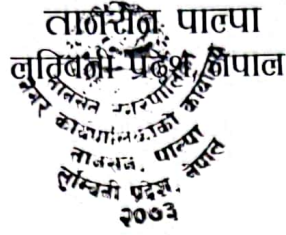 तानसेन पाल्पा
लुम्बिनी प्रदेश, नेपाल
तानसेन नगरपालिका
नगर कार्यपालिकाको कार्यालय
तानसेन, पाल्पा
लुम्बिनी प्रदेश, नेपाल
२०७३